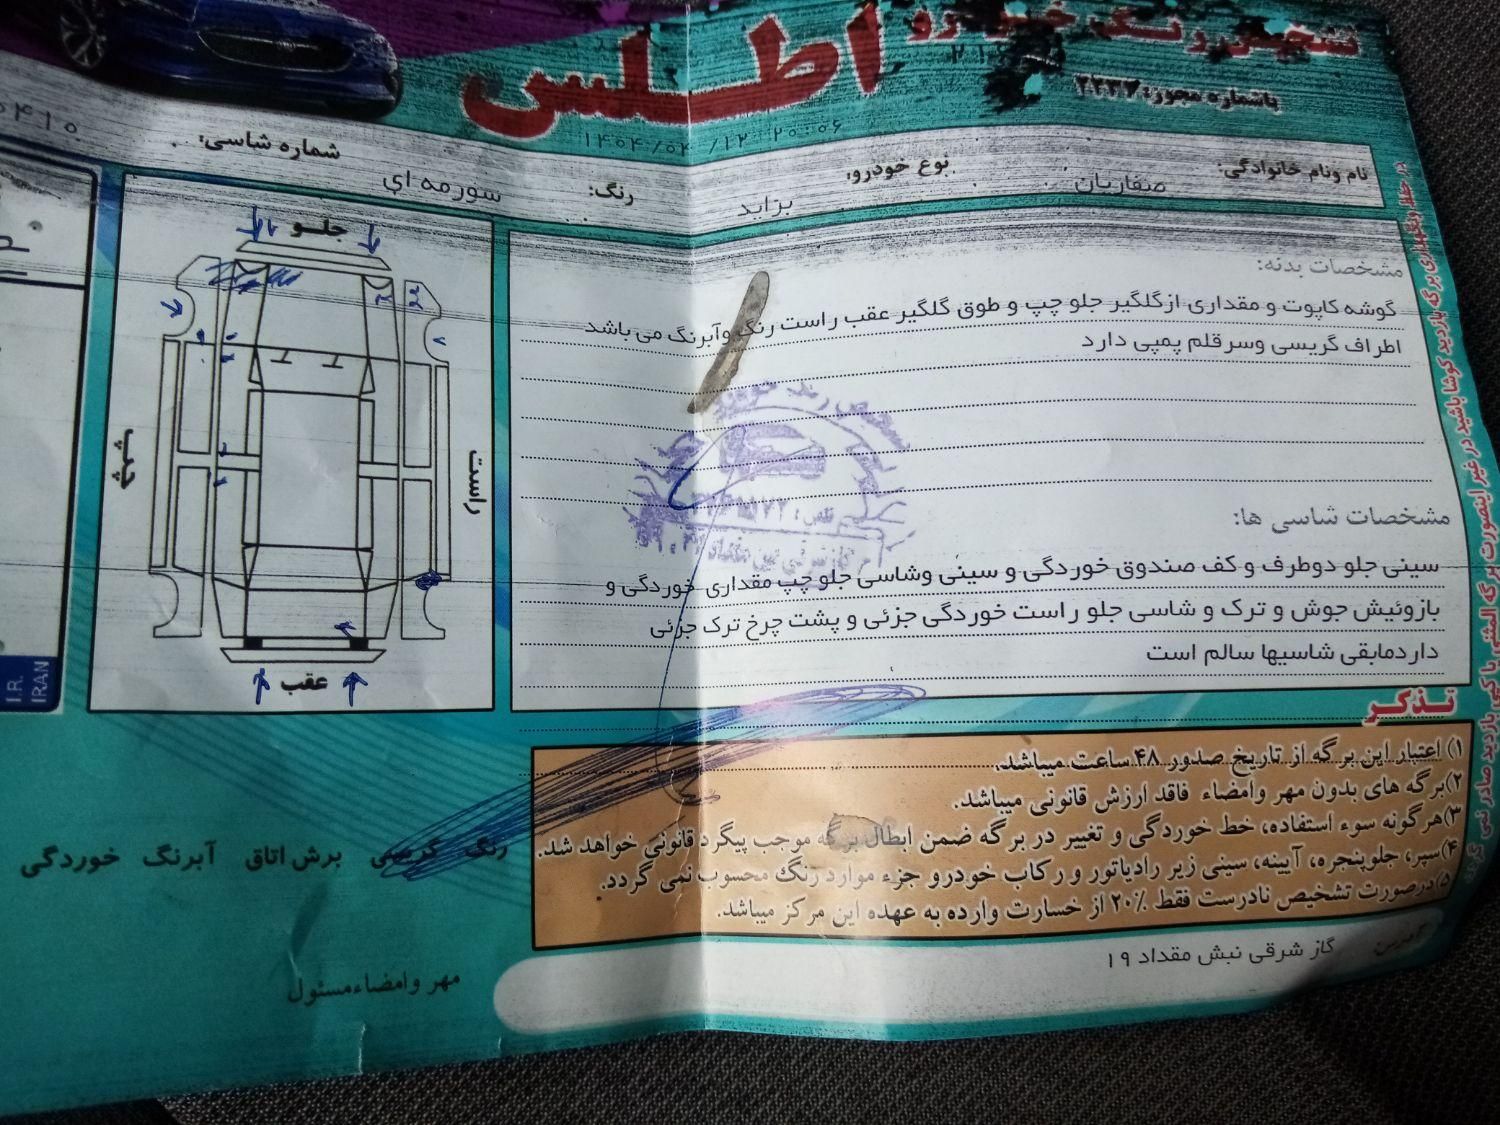 تشخیص رنگ خودرو
اطلس
باشماره مجوز: ۲۲۳۷
۱۴۰۴/۰۴/۱۲ ۲۰:۰۶
نام ونام خانوادگی: صفاریان نوع خودرو: براید رنگ: سورمه ای شماره شاسی:
۰۴۱۰
مشخصات بدنه:
گوشه کاپوت و مقداری ازگلگیر جلو چپ و طوق گلگیر عقب راست رنگ وآبرنگ می باشد
اطراف گریسی وسرقلم پمپی دارد
مشخصات شاسی ها:
سینی جلو دوطرف و کف صندوق خوردگی و سینی وشاسی جلو چپ مقداری خوردگی و
بازوئیش جوش و ترک و شاسی جلو راست خوردگی جزئی و پشت چرخ ترک جزئی
داردمابقی شاسیها سالم است
جلو
راست
چپ
عقب
I.R.
IRAN
تذکر
۱) اعتبار این برگه از تاریخ صدور ۴۸ ساعت میباشد.
۲)برگه های بدون مهر وامضاء فاقد ارزش قانونی میباشد.
۳)هرگونه سوء استفاده، خط خوردگی و تغییر در برگه ضمن ابطال برگه موجب پیگرد قانونی خواهد شد.
۴)سپر، جلوپنجره، آیینه، سینی زیر رادیاتور و رکاب خودرو جزء موارد رنگ محسوب نمی گردد.
۵)درصورت تشخیص نادرست فقط ۲۰٪ از خسارت وارده به عهده این مرکز میباشد.
رنگ گریسی برش اتاق آبرنگ خوردگی
مهر وامضاءمسئول
آدرس: گاز شرقی نبش مقداد ۱۹
در حفظ ونگهداری برگه بازدید کوشا باشید در غیر اینصورت برگه المثنی یا کپی بازدید صادر نمی گردد